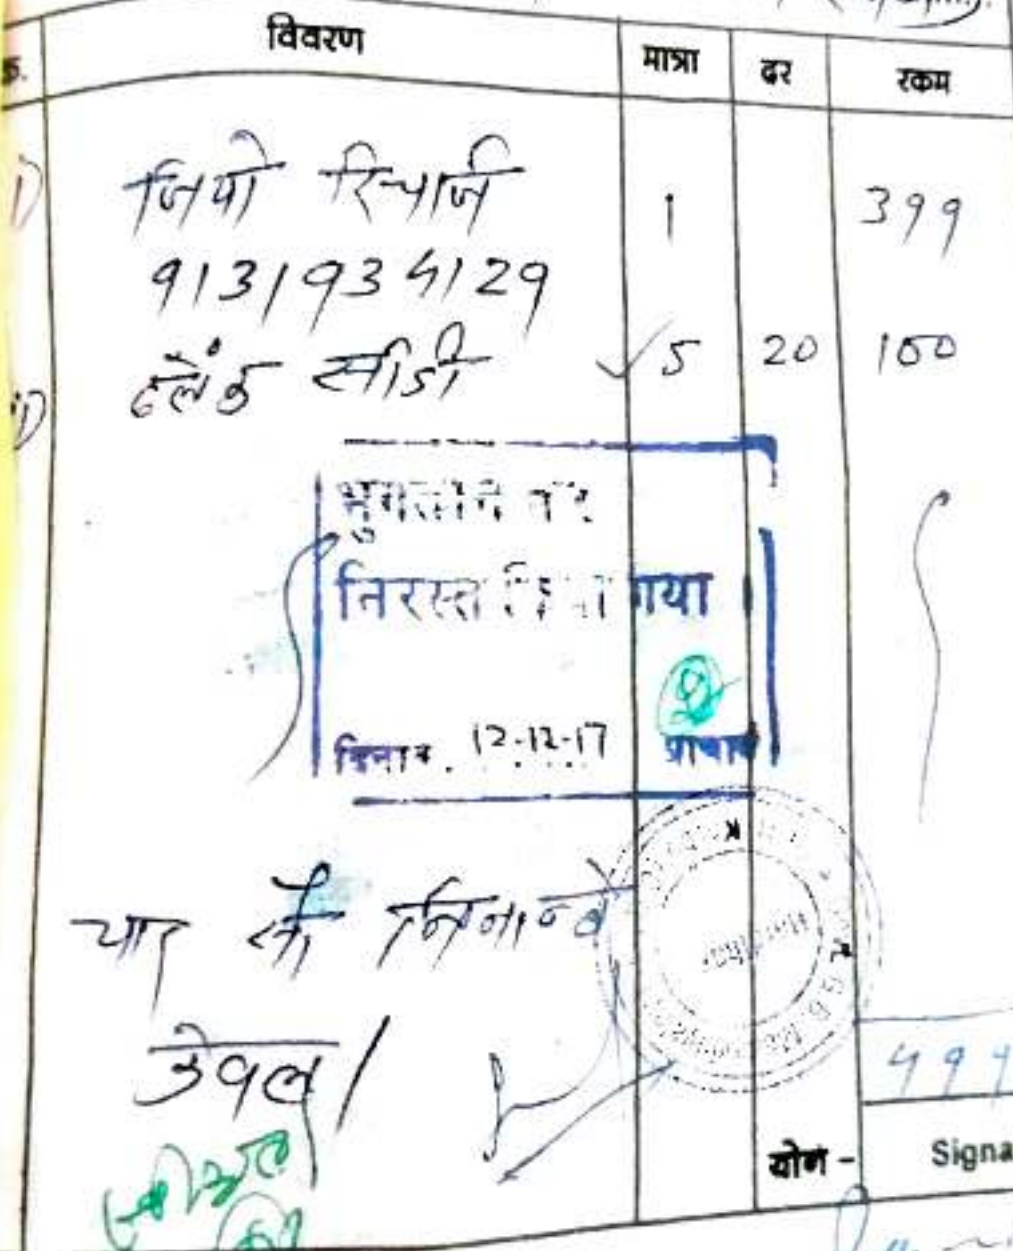 विवरण मात्रा दर रकम
1) जियो रिचार्ज 1 399
9131934129
ब्लैंक सीडी ✓ 5 20 100
भुगतान कर
निरस्त किया गया
दिनांक 12-12-17 प्राचार्य
चार सौ निनान्वे
केवल/
499
योग -
Signa